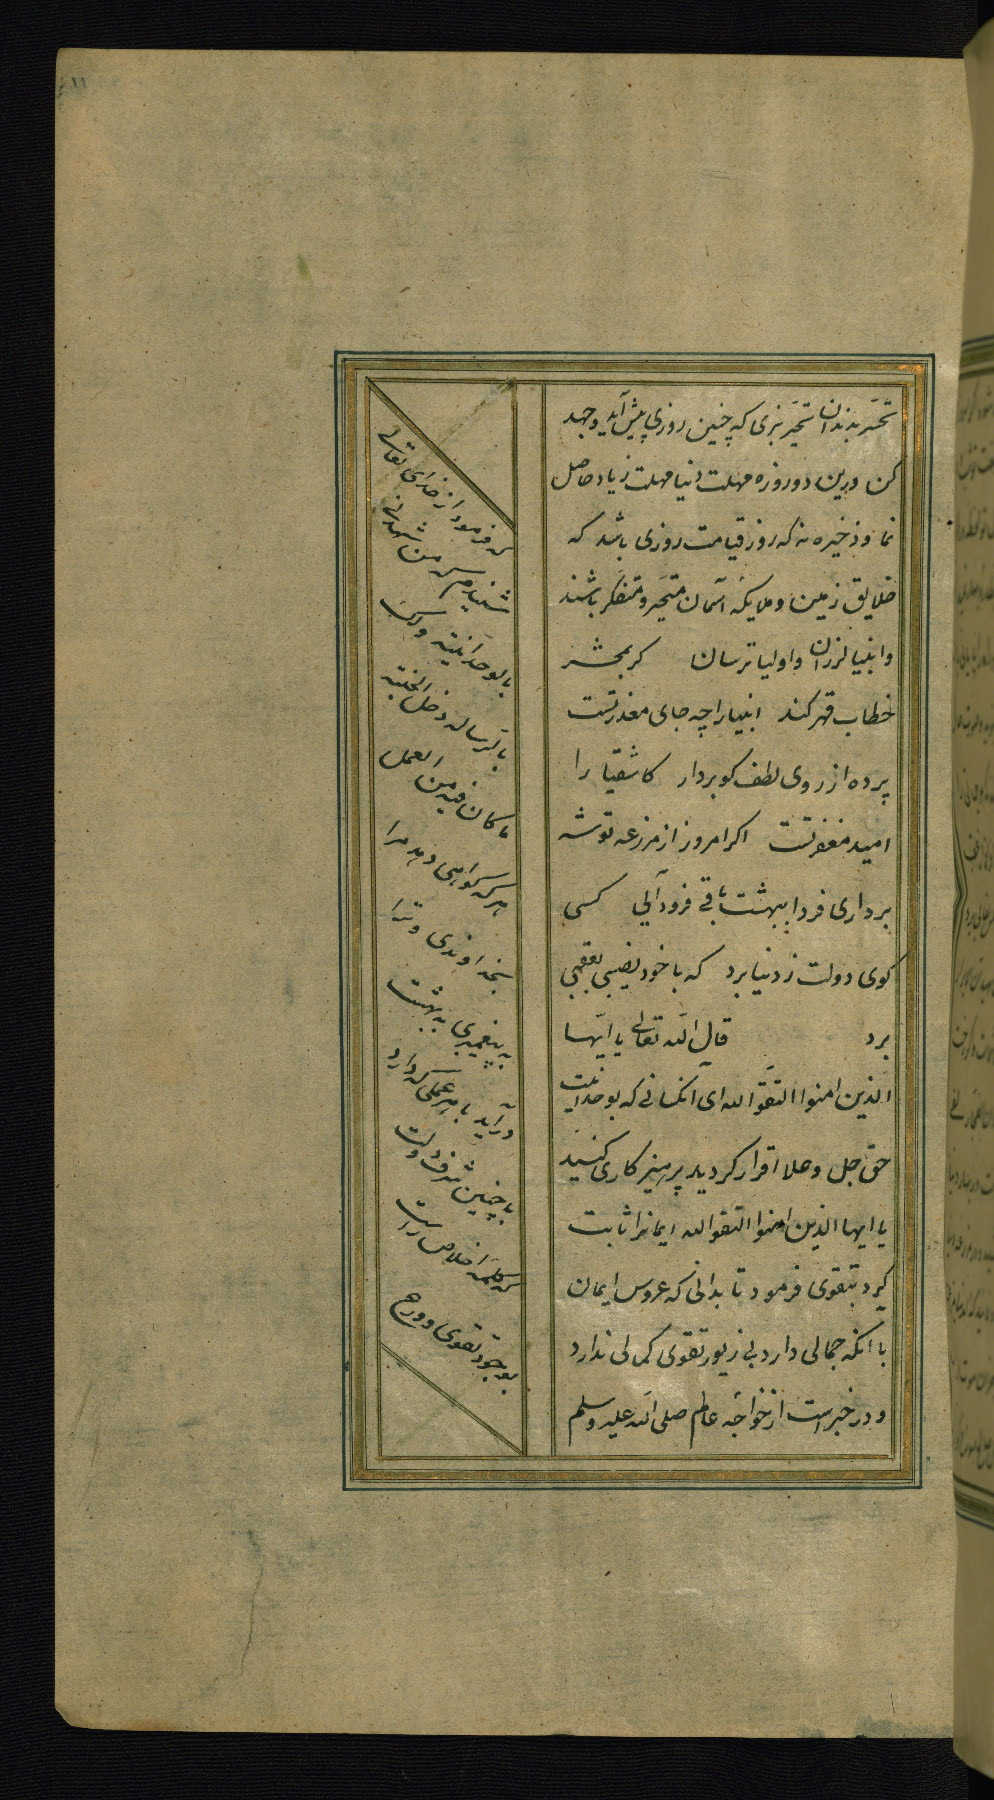 تحسّر بدندان تحیّر بزی که چنین روزی پیش آید و جهد
کن درین دو روزه مهلت دنیا مهلت زیاد حاصل
نما و ذخیره نه که روز قیامت روزی باشد که
خلایق زمین و ملایکه آسمان متحیّر و متفکر باشند
و انبیا لرزان و اولیا ترسان کر بمحشر
خطاب قهر کند انبیا را چه جای معذرتست
پرده از روی لطف کو بردار کاشقیا را
امید مغفرتست اکر امروز از مزرعه توشه
برداری فردا ببهشت باقی فرود آئی کسی
کوی دولت ز دنیا برد که با خود نصیبی بعقبی
برد قال الله تعالی یا ایّها
الذین امنوا اتّقوا الله ای آنکسانی که بوحدانیت
حق جل و علا اقرار کردید پرهیزکاری کنید
یا ایها الذین امنوا اتقوا الله ایمانرا ثابت
کرد بتقوی فرمود تا بدانی که عروس ایمان
با آنکه جمالی دارد بی زیور تقوی کمالی ندارد
و در خبر است از خواجه عالم صلی الله علیه وسلم
که فرمود از خدای تعالی
شنیدم که من شهد لی
بالوحدانیّة ولک
بالرّساله دخل الجنّة
ما کان فیه من العمل
هر که کواهی دهد مرا
بخداوندی و ترا
پیغمبری به بهشت
درآید با هر عملی که دارد
با چنین شرف و دولت
که کلمه اخلاص راست
بوجود تقوی و ورع